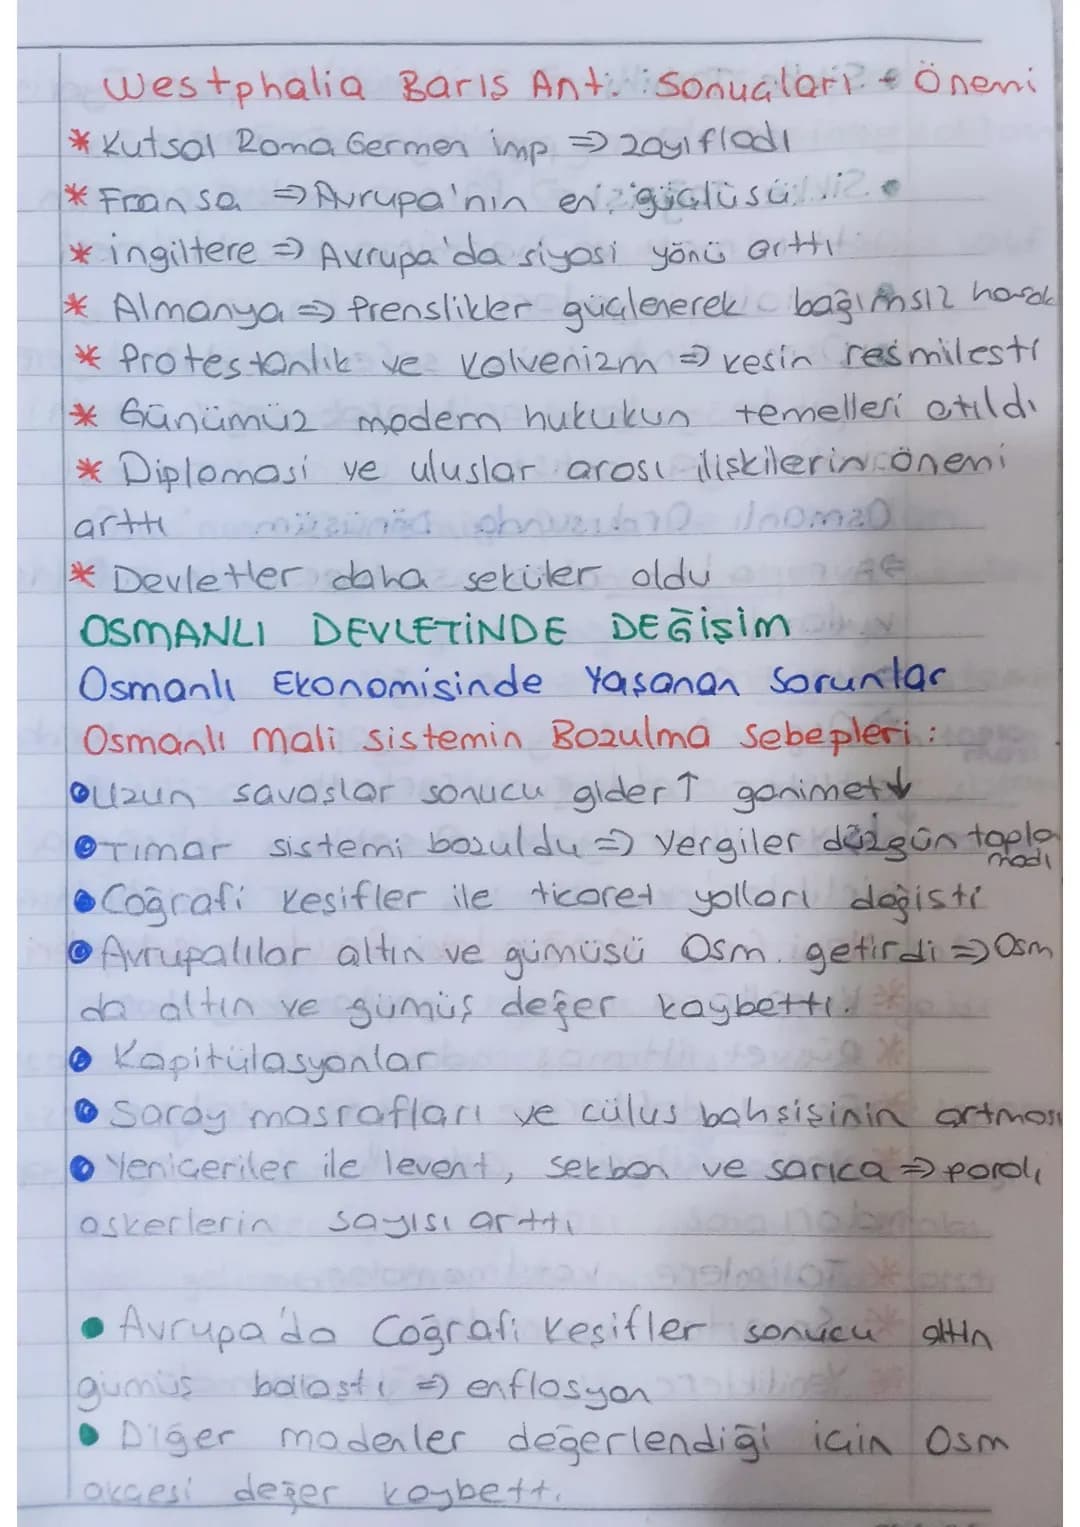 Westphalia Barış Ant. Sonuçları - Önemi
* Kutsal Roma Germen imp => zayıfladı
* Fransa => Avrupa'nın en güçlüsü
* İngiltere => Avrupa'da siyasi yönü arttı
* Almanya => Prenslikler güçlenerek bağımsız
* Protestanlık ve Kalvenizm => kesin resmileşti
* Günümüz modern hukukun temelleri atıldı
* Diplomasi ve uluslar arası ilişkilerin önemi
arttı
* Devletler daha seküler oldu
OSMANLI DEVLETİNDE DEĞİŞİM
Osmanlı Ekonomisinde Yaşanan Sorunlar
Osmanlı Mali Sistemin Bozulma Sebepleri :
• Uzun savaşlar sonucu gider ↑ ganimet ↓
• Tımar sistemi bozuldu => Vergiler düzgün topla
madı
• Coğrafi Keşifler ile ticaret yolları değişti
• Avrupalılar altın ve gümüşü Osm. getirdi => Osm
da altın ve gümüş değer kaybettı.
• Kapitülasyonlar
• Saray masrafları ve cülus bahşişinin artması
• Yeniçeriler ile levent, sekban ve sarıca => paralı
askerlerin sayısı arttı
• Avrupa'da Coğrafi Keşifler sonucu altın
gümüş bollaştı => enflasyon
• Diğer madenler değerlendiği için Osm
akçesi değer kaybett.